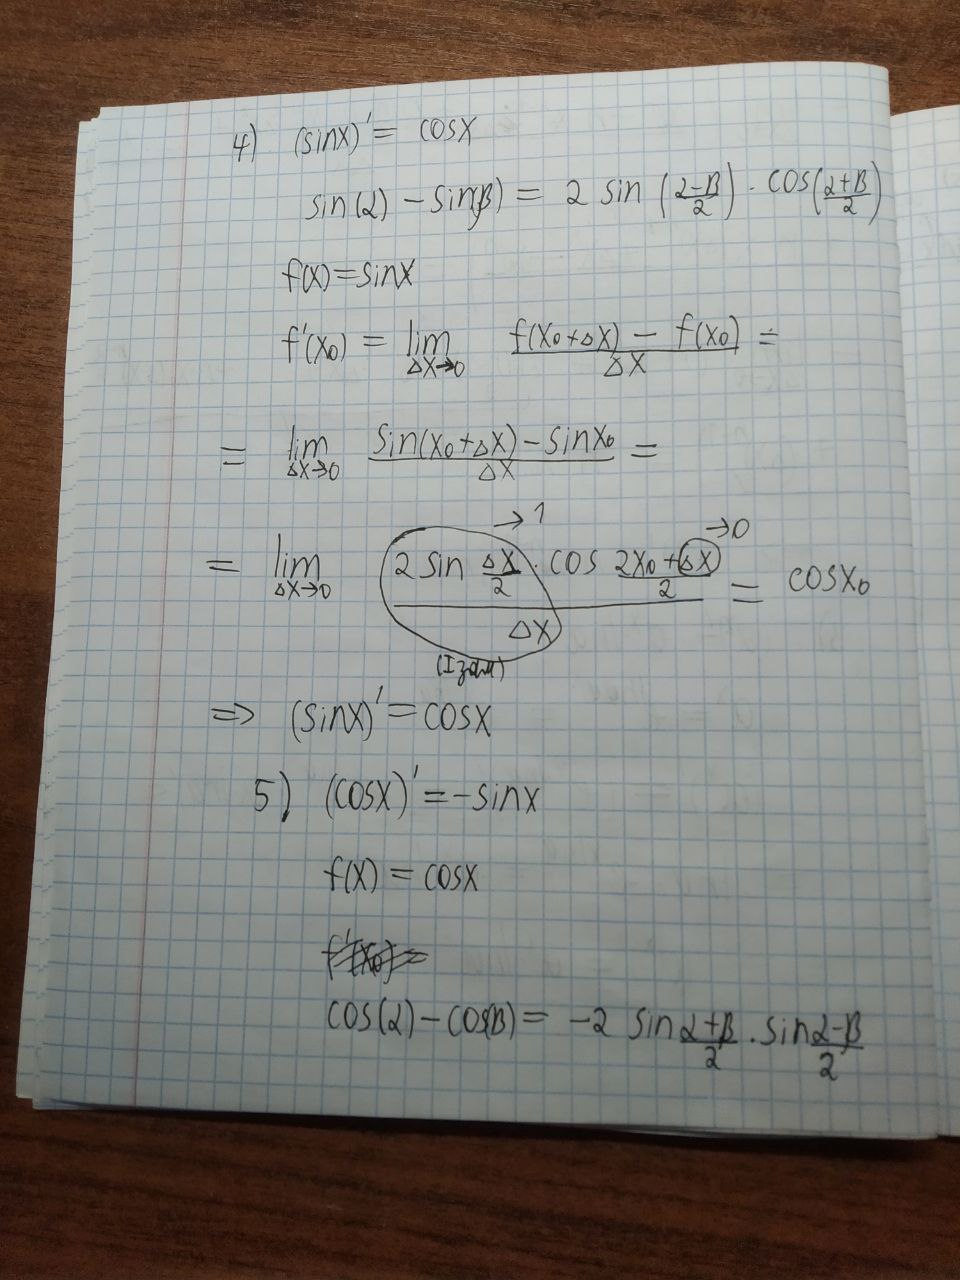 4) (sinx)' = cosx
sin(α) - sin(β) = 2 sin (α-β/2) · cos(α+β/2)
f(x) = sinx
f'(x₀) = lim Δx→0 f(x₀+Δx) - f(x₀)/Δx =
= lim Δx→0 sin(x₀+Δx) - sinx₀/Δx =
→1 →0
= lim Δx→0 2 sin Δx/2 · cos 2x₀+Δx/2 /Δx = cosx₀
⇒ (sinx)' = cosx
5) (cosx)' = -sinx
f(x) = cosx
f'(x₀) =
cos(α) - cos(β) = -2 sin α+β/2 · sin α-β/2